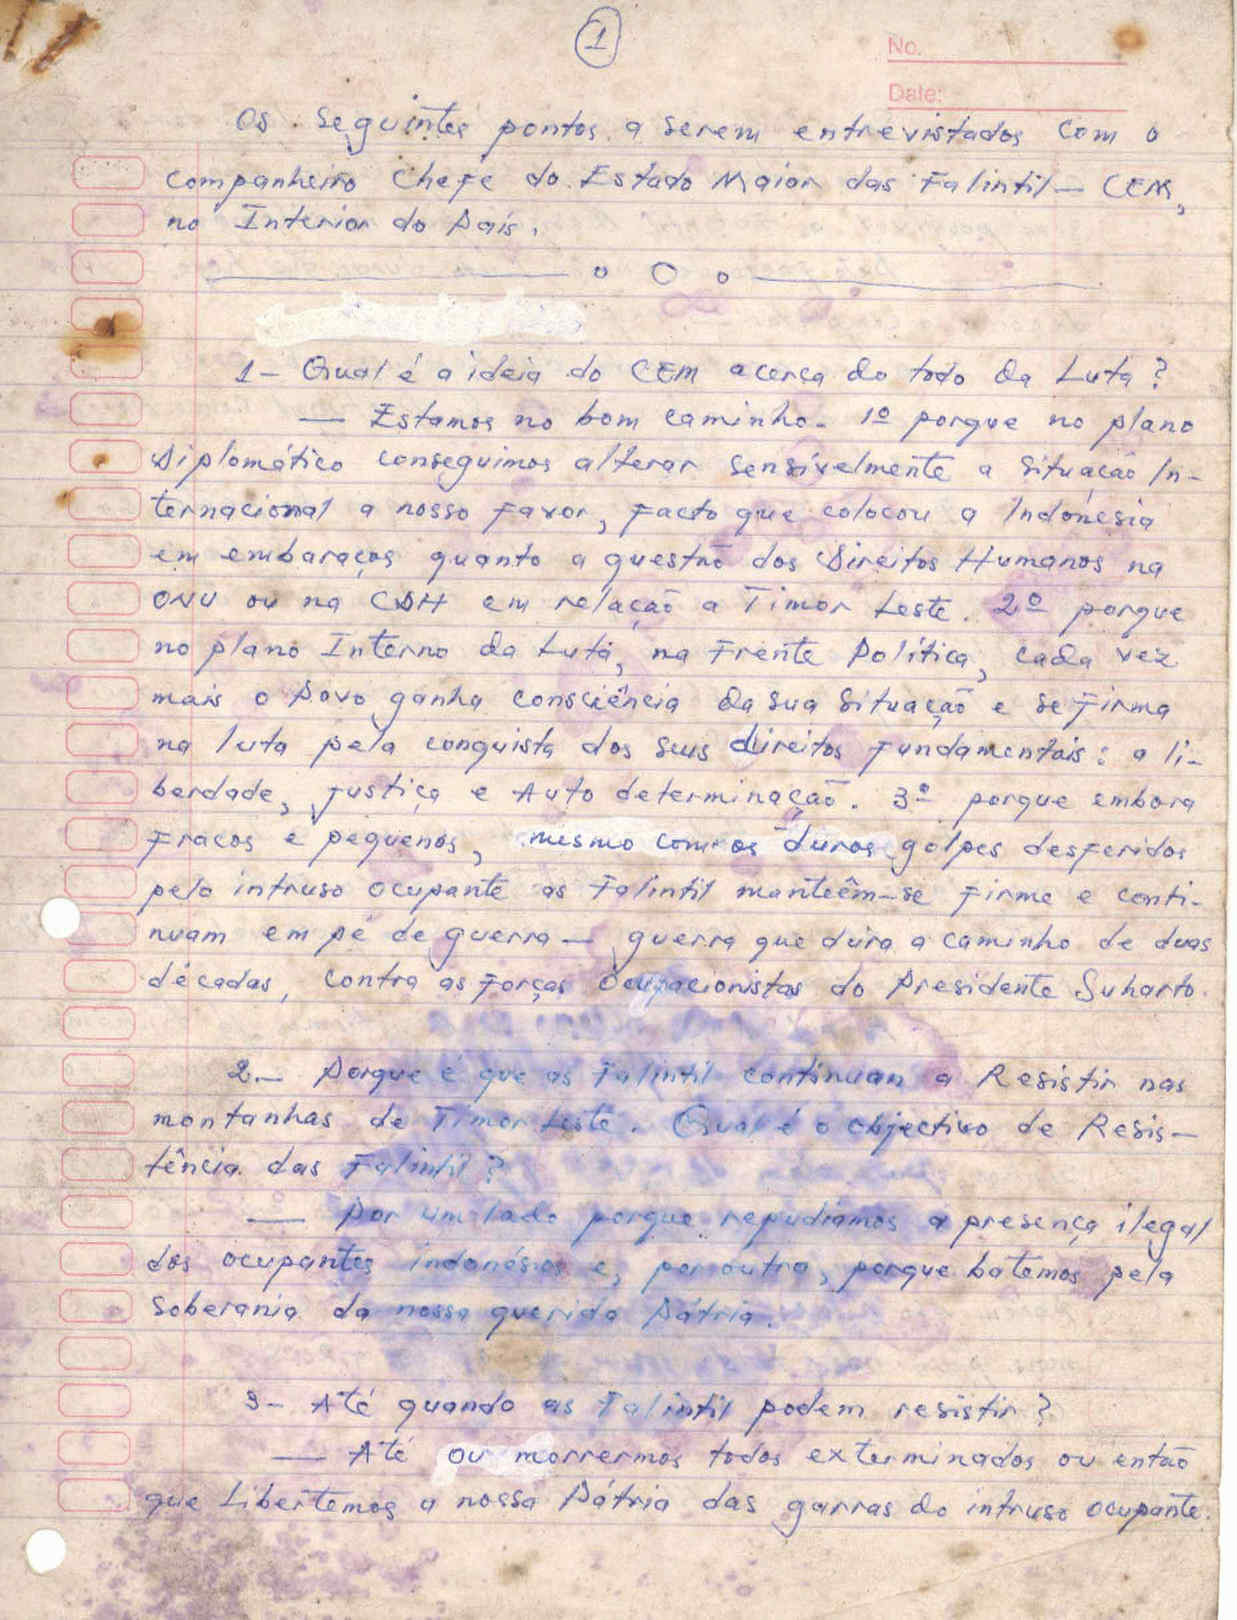 1
No.
Date:
Os Seguintes pontos a serem entrevistados com o
companheiro Chefe do Estado Maior das Falintil — CEM,
no Interior do País.
o O o
1- Qual é a ideia do CEM acerca do todo da Luta?
— Estamos no bom caminho. 1º porque no plano
Diplomático conseguimos alterar sensívelmente a Situação In-
ternacional a nosso favor, facto que colocou a Indonésia
em embaraços quanto a questão dos Direitos Humanos na
ONU ou na CDH em relação a Timor Leste. 2º porque
no plano Interno da Luta, na Frente Política, cada vez
mais o Povo ganha consciência da sua Situação e se firma
na luta pela conquista dos seus direitos fundamentais: a li-
berdade, justiça e Auto determinação. 3º porque embora
fracos e pequenos, mesmo com os duros golpes desferidos
pelo intruso ocupante as Falintil manteêm-se firme e conti-
nuam em pé de guerra — guerra que dura a caminho de duas
décadas, contra as forças ocupacionistas do Presidente Suharto.
2.— Porque é que as Falintil continuam a Resistir nas
montanhas de Timor Leste. Qual é o objectivo de Resis-
tência das Falintil?
— Por um lado porque repudiamos a presença ilegal
dos ocupantes indonésios e, por outro, porque batemos pela
Soberania da nossa querida Pátria.
3- Até quando as Falintil podem resistir?
— Até ou morrermos todos exterminados ou então
que Libertemos a nossa Pátria das garras do intruso ocupante.